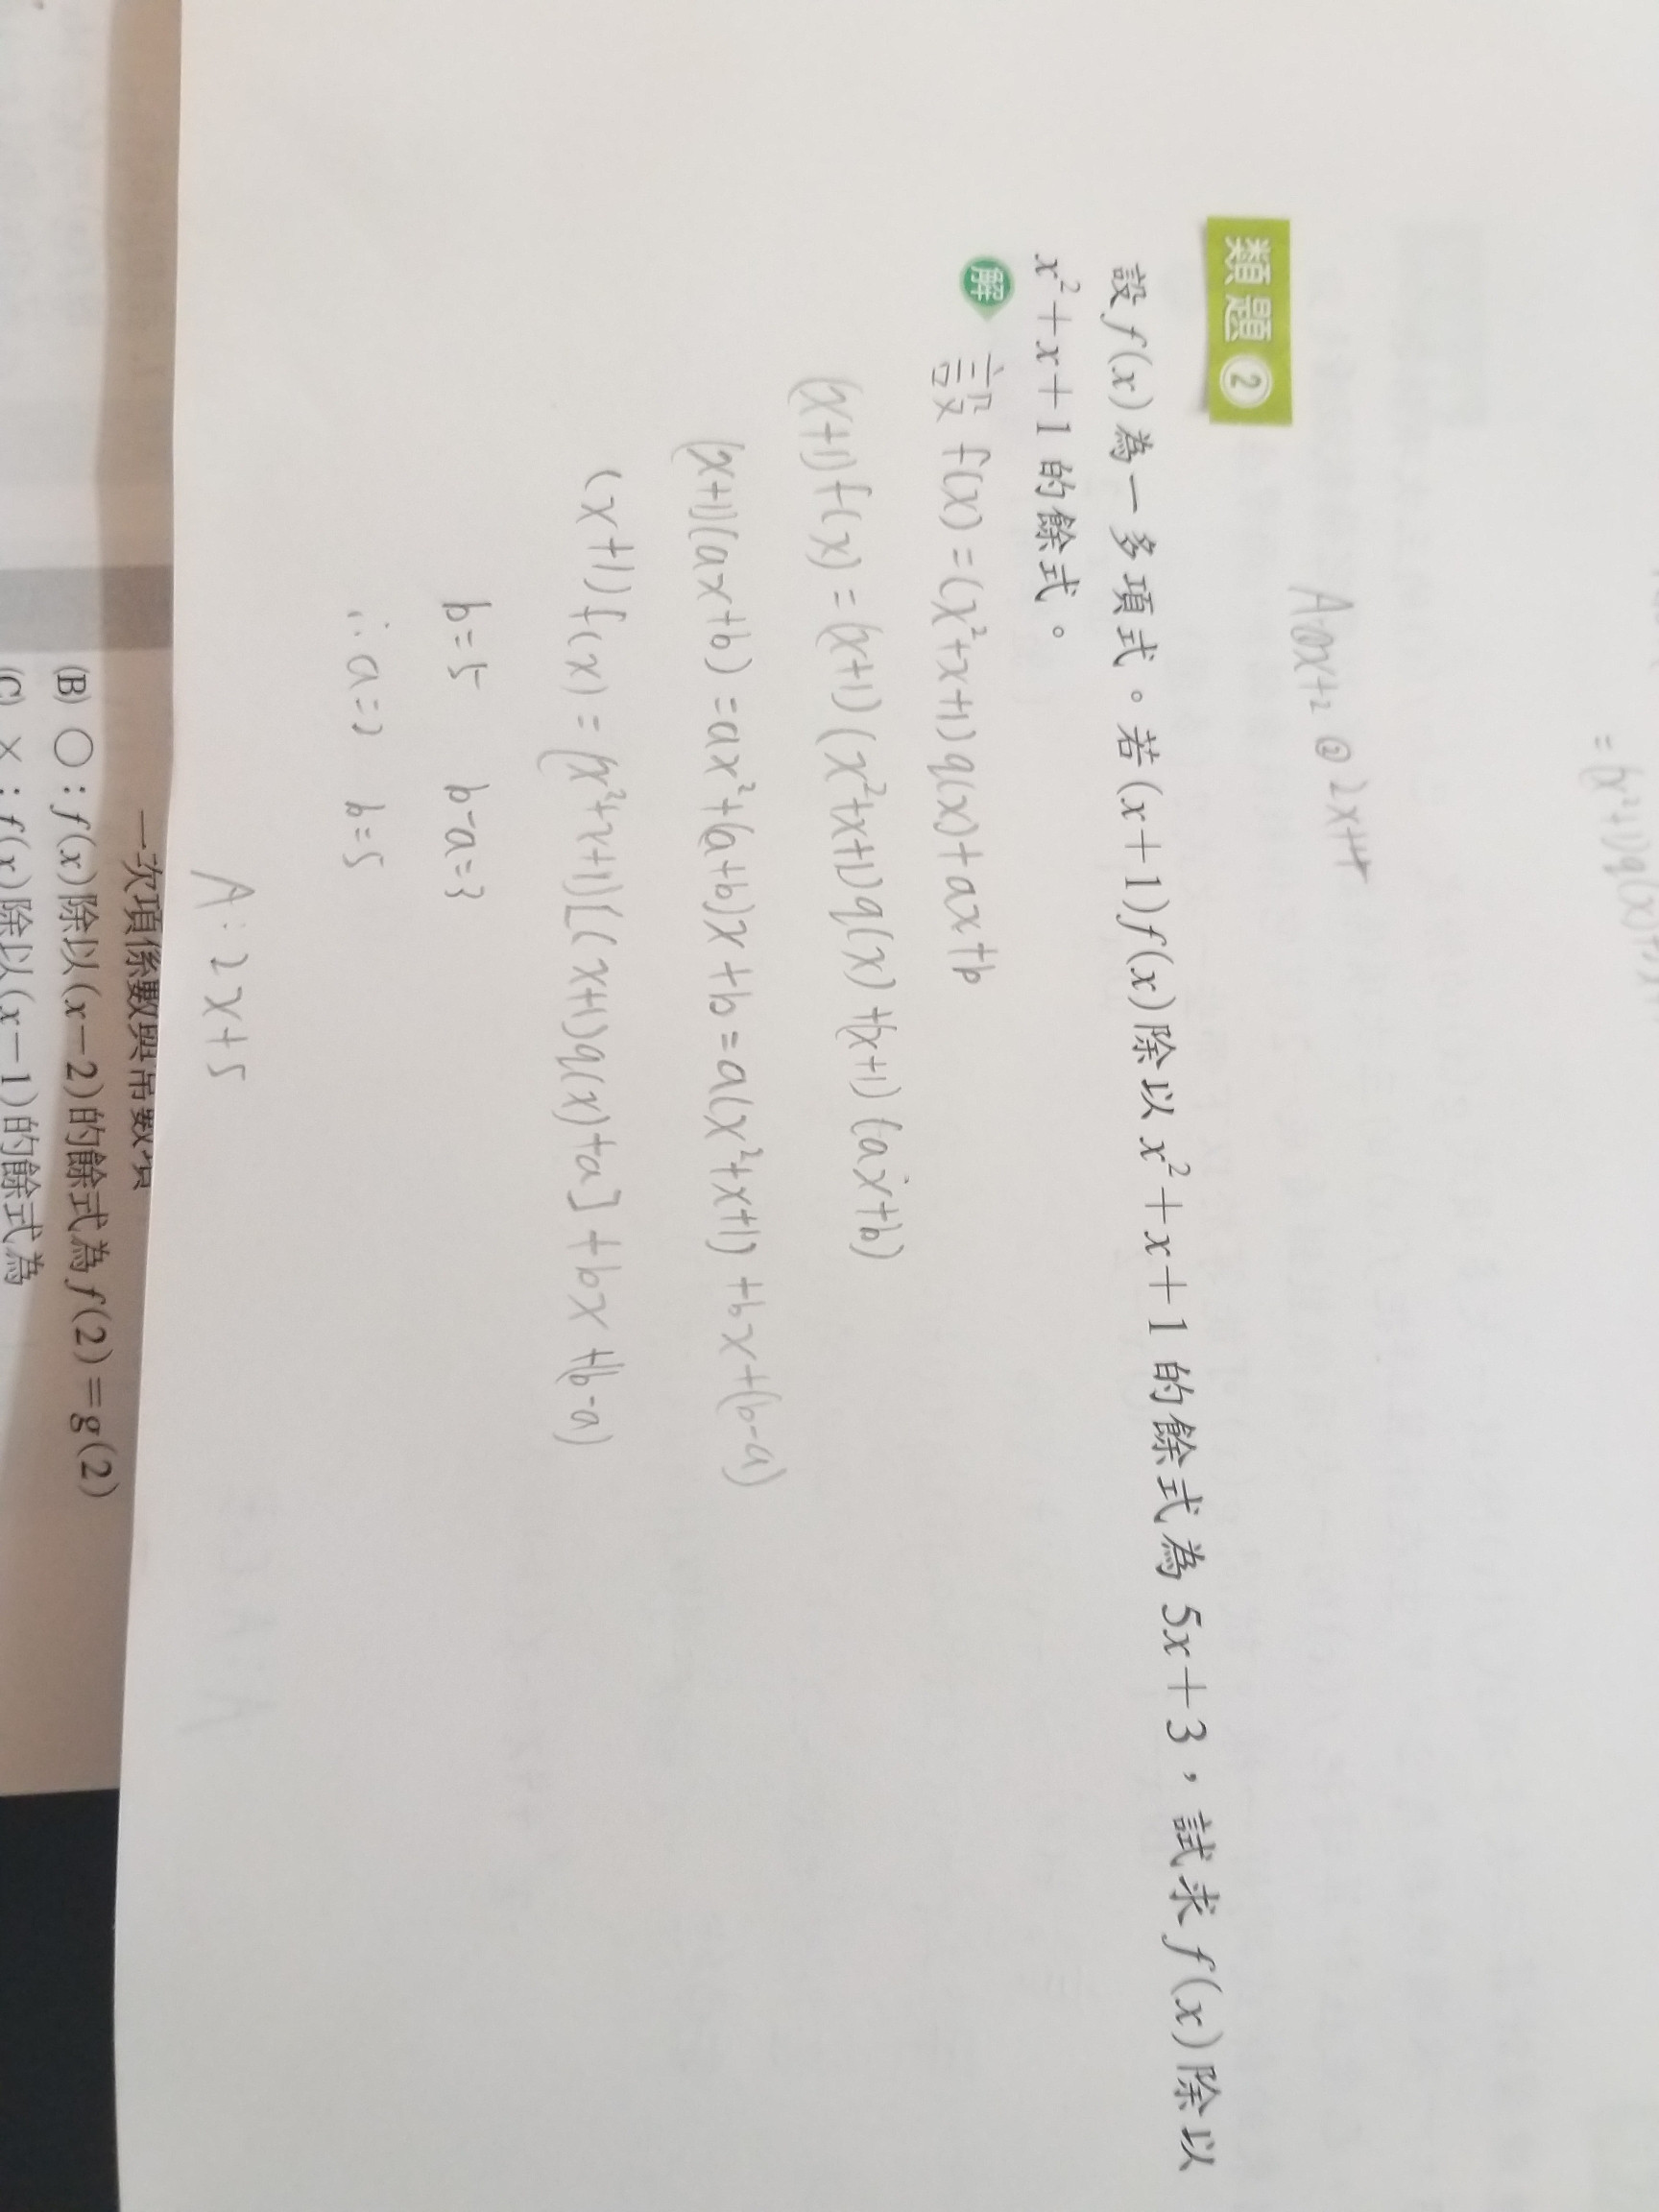 = (x²+1)q(x)+
A①x+2 ② 2x+4
類題 2
設 f(x) 為一多項式。若 (x+1)f(x) 除以 x²+x+1 的餘式為 5x+3，試求 f(x) 除以
x²+x+1 的餘式。
解 設 f(x) = (x²+x+1) q(x) + ax+b
(x+1) f(x) = (x+1) (x²+x+1) q(x) + (x+1) (ax+b)
(x+1)(ax+b) = ax²+(a+b)x+b = a(x²+x+1) +bx+(b-a)
(x+1) f(x) = (x²+x+1)[(x+1)q(x)+a]+bx+(b-a)
b=5 b-a=3
∴ a=2 b=5
A: 2x+5
一次項係數與常數項
(B) ○：f(x)除以(x-2)的餘式為f(2)=g(2)
(C) ×：f(x)除以(x-1)的餘式為